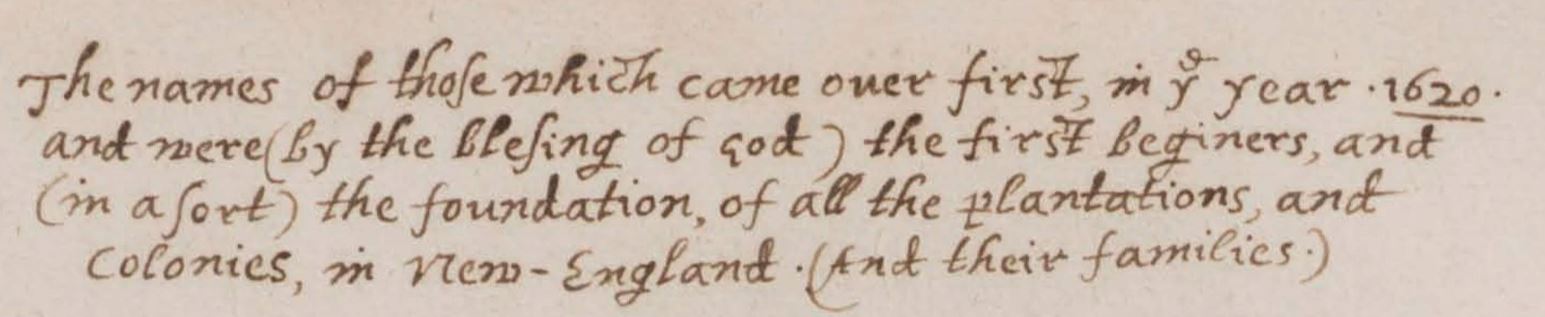 The names of thoſe which came over first, in yᵉ year ·1620·
and were (by the bleſing of god) the first beginers, and
(in a ſort) the foundation, of all the plantations, and
Colonies, in New-England. (And their families.)